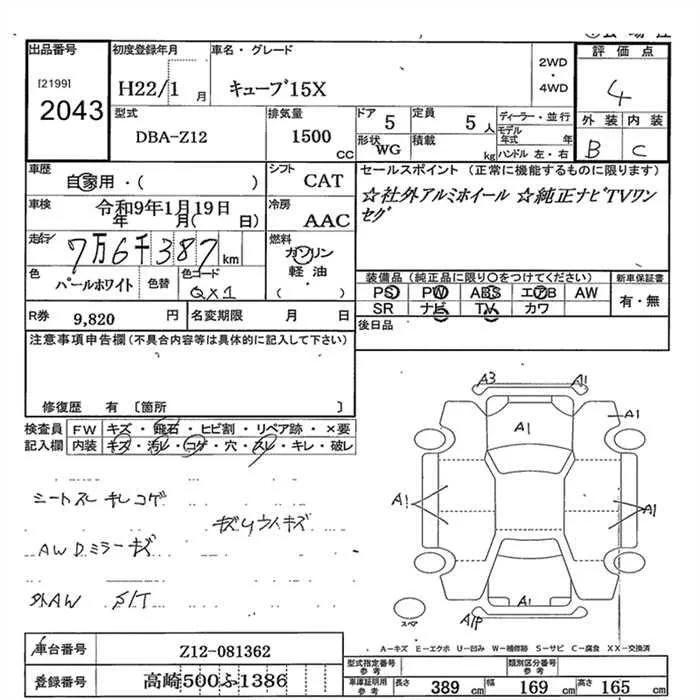 出品番号 初度登録年月 車名・グレード 2WD・4WD 評価点
[2199] 2043 H22/1月 キューブ15X 4
型式 排気量 ドア 定員 ディーラー・並行
DBA-Z12 1500CC 5 5人 モデル年式 年
形状 WG 積載 kg ハンドル 左・右
外装 内装
B C
車歴 自家用・( ) シフト CAT
セールスポイント (正常に機能するものに限ります)
☆社外アルミホイール ☆純正ナビTVワンセグ
車検 令和9年1月19日 冷房 AAC
年 月( 日)
走行 7万6千387km 燃料 ガソリン
軽・油
( )
色 パールホワイト 色替 色コード QX1
装備品 (純正品に限り○をつけてください) 新車保証書
PS PW ABS エアB AW 有・無
SR ナビ TV カワ
R券 9,820円 名変期限 月 日 後日品
注意事項申告欄 (不具合内容等は具体的に記入して下さい)
修復歴 有 [箇所 ]
検査員記入欄 FW キズ・飛石・ヒビ割・リペア跡・×要
内装 キズ・汚レ・コゲ・穴・スレ・キレ・破レ
シートスレ キレ コゲ
キズUウスキズ
AW Dミラーキズ
外AW S/T
A3 A1
A1 A1
A1 A1
A1
A1P
スペア
A-キズ E-エクボ U-凹み W-補修跡 S-サビ C-腐食 XX-交換済
車台番号 Z12-081362
登録番号 高崎500ふ1386
型式指定番号 参考 類別区分番号 参考
車庫証明用 参考 長さ 389cm 幅 169cm 高さ 165cm